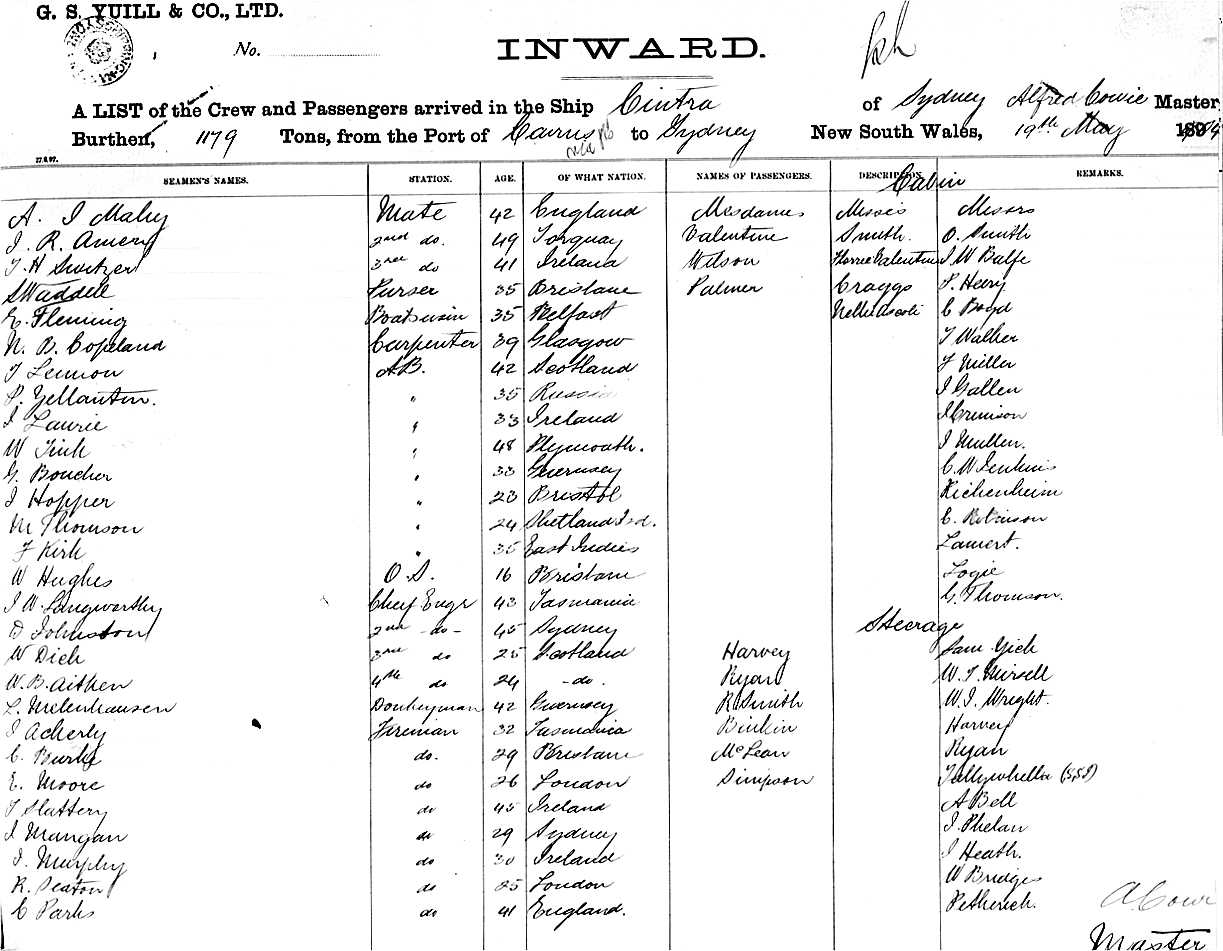 G. S. YUILL & CO., LTD.
No.
INWARD.
A LIST of the Crew and Passengers arrived in the Ship Cintra of Sydney Alfred Cowie Master
Burthen, 1179 Tons, from the Port of Cairns to Sydney New South Wales, 19th May 189
27.9.97.
SEAMEN'S NAMES. STATION. AGE. OF WHAT NATION. NAMES OF PASSENGERS. DESCRIPTION. REMARKS.
Cabin
A. J Mahy Mate 42 England Mesdames Misses Messrs
J. R. Amery 2nd do. 49 Torquay Valentine Smith. O. Smith
T. H Switzer 3rd do 41 Ireland Wilson Florrie Valentine J W Balfe
S Waddell Purser 35 Brisbane Palmer Craggs P. Heery
E. Fleming Boatswain 35 Belfast Nellie Ascoli C Boyd
N. B. Copeland Carpenter 39 Glasgow T Walker
T Lennon A.B. 42 Scotland J Miller
P. Yellantin. " 35 Russia J Gallen
J Laurie " 33 Ireland J Crimison
W Tink " 48 Plymouth. J Mullen.
G. Boucher " 33 Guernsey C. W Jenkins
J Hopper " 23 Bristol Richenheim
M Thomson " 24 Shetland Isd. C. Robinson
F Kirk " 35 East Indies Lamert.
W Hughes O.S. 16 Brisbane Logie
J W. Langworthy Chief Engr 43 Tasmania G. Thomson.
D Johnston 2nd -do- 45 Sydney Steerage
W Dick 3rd do 25 Scotland Harvey Sam Yick
W. B. Aitken 4th do 24 -do. Ryan W. T. Mirsell
L. Melenhausen Donkeyman 42 Guernsey R Smith W. J. Wright.
J Acherly Fireman 32 Tasmania Binkin Harvey
C. Burke do. 29 Brisbane McLean Ryan
E. Moore do 26 London Simpson Tallywhella (S,S,S)
T Slattery do 45 Ireland A Bell
J Mangan do 29 Sydney J Phelan
J. Murphy do 30 Ireland J Heath.
R. Seaton do 25 London W Bridges
C Parks do 41 England. Petherick.
A Cowi
Master